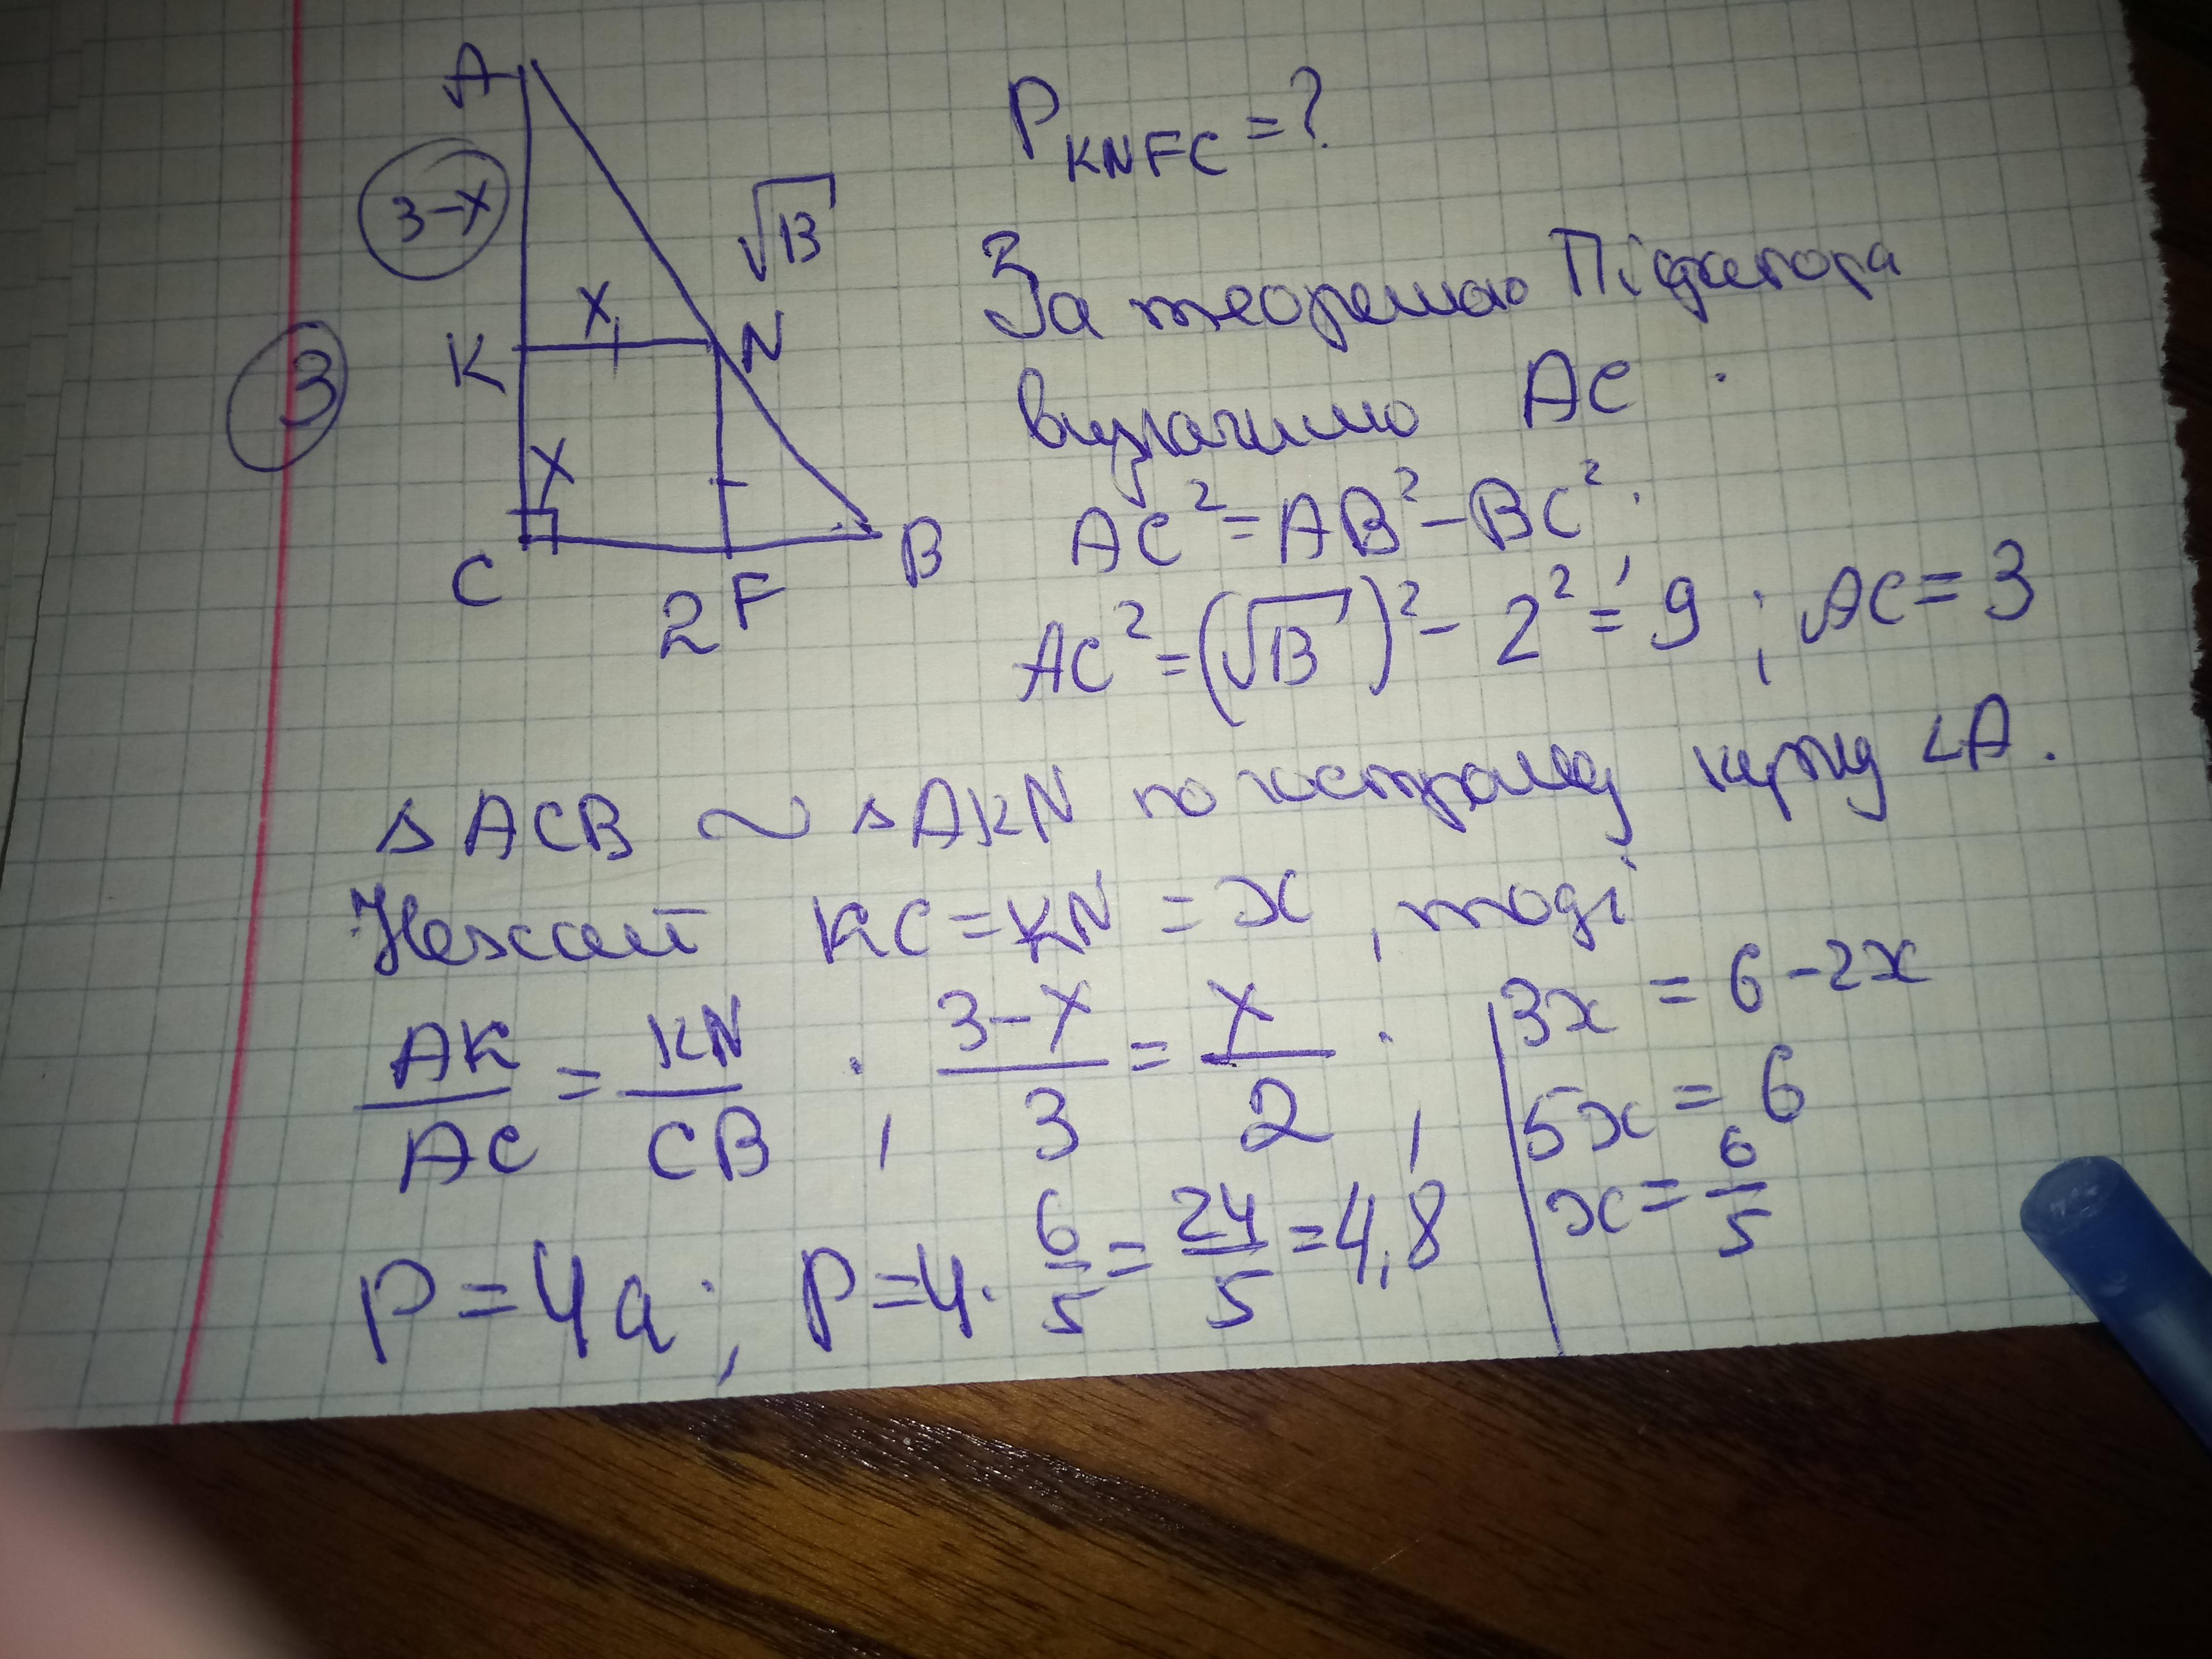 A
P KNFC = ?
3-x
√13
За теоремою Піфагора
x
K
N
визначимо AC:
3
x
AC² = AB² - BC²;
C
F
B
2
AC² = (√13)² - 2² = 9; AC = 3
△ACB ~ △AKN по гострому куту ∠A.
Нехай KC = KN = x, тоді
AK/AC = KN/CB; (3-x)/3 = x/2;
3x = 6 - 2x
5x = 6
x = 6/5
P = 4a; P = 4 · 6/5 = 24/5 = 4,8